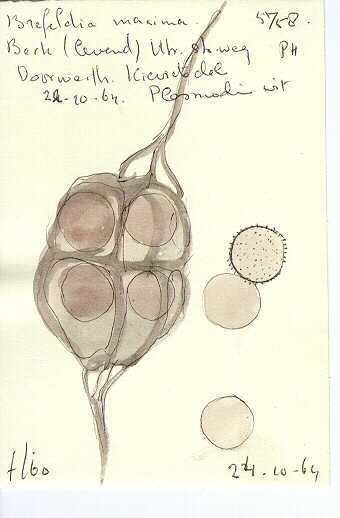 Brefeldia maxima. 5768.
Beek (levend) Utr. str.weg PH
Doorwerth. Kievitsdel
24-10-64. Plasmodi wit
24-10-64